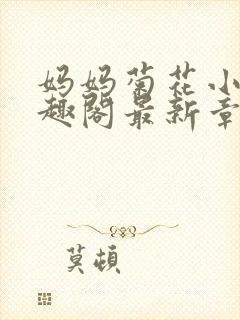 妈妈菊花小
趣阁最新章
莫顿